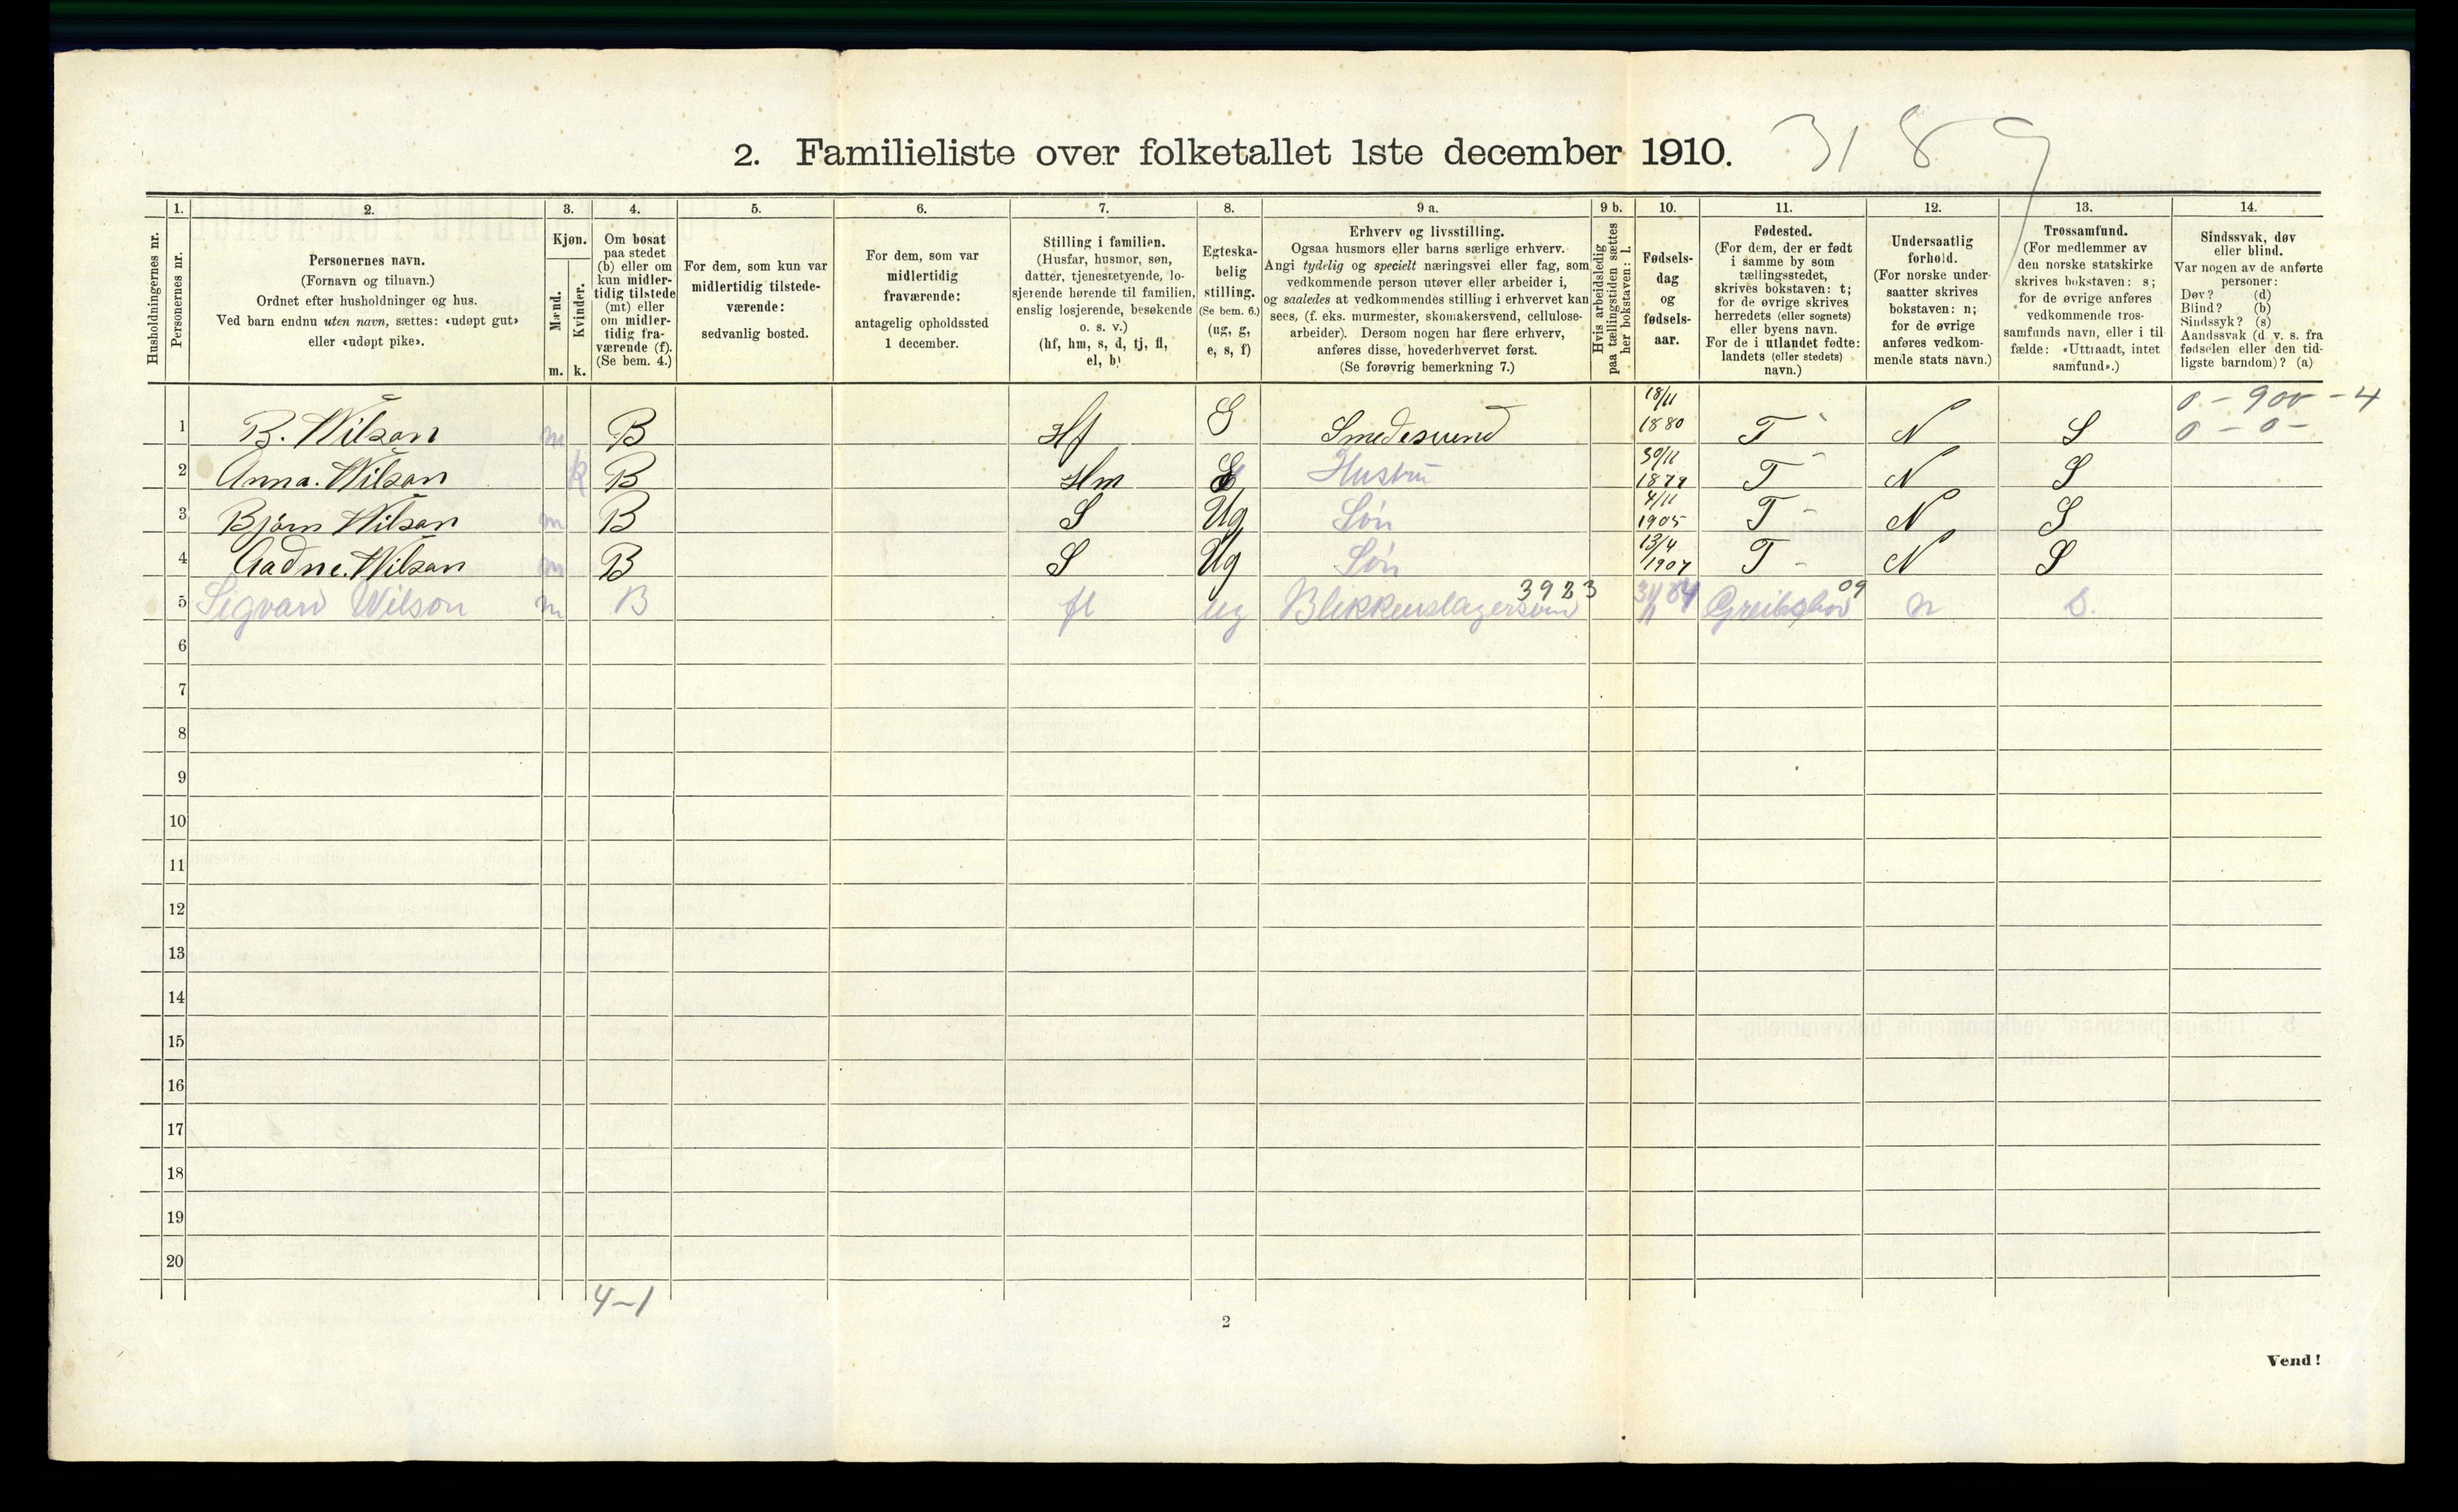 2. Familieliste over folketallet 1ste december 1910. 3189
Husholdningernes nr.
1. Personernes nr.
2. Personernes navn.
(Fornavn og tilnavn.)
Ordnet efter husholdninger og hus.
Ved barn endnu uten navn, sættes: «udøpt gut»
eller «udøpt pike».
3. Kjøn.
Mænd. m.
Kvinder. k.
4. Om bosat
paa stedet
(b) eller om
kun midler-
tidig tilstede
(mt) eller
om midler-
tidig fra-
værende (f).
(Se bem. 4.)
5. For dem, som kun var
midlertidig tilstede-
værende:
sedvanlig bosted.
6. For dem, som var
midlertidig
fraværende:
antagelig opholdssted
1 december.
7. Stilling i familien.
(Husfar, husmor, søn,
datter, tjenestetyende, lo-
sjerende hørende til familien,
enslig losjerende, besøkende
o. s. v.)
(hf, hm, s, d, tj, fl,
el, b)
8. Egteska-
belig
stilling.
(Se bem. 6.)
(ug, g,
e, s, f)
9 a. Erhverv og livsstilling.
Ogsaa husmors eller barns særlige erhverv.
Angi tydelig og specielt næringsvei eller fag, som
vedkommende person utøver eller arbeider i,
og saaledes at vedkommendes stilling i erhvervet kan
sees, (f. eks. murmester, skomakersvend, cellulose-
arbeider). Dersom nogen har flere erhverv,
anføres disse, hovederhvervet først.
(Se forøvrig bemerkning 7.)
9 b. Hvis arbeidsledig
paa tællingstiden sættes
her bokstaven: l.
10. Fødsels-
dag
og
fødsels-
aar.
11. Fødested.
(For dem, der er født
i samme by som
tællingsstedet,
skrives bokstaven: t;
for de øvrige skrives
herredets (eller sognets)
eller byens navn.
For de i utlandet fødte:
landets (eller stedets)
navn.)
12. Undersaatlig
forhold.
(For norske under-
saatter skrives
bokstaven: n;
for de øvrige
anføres vedkom-
mende stats navn.)
13. Trossamfund.
(For medlemmer av
den norske statskirke
skrives bokstaven: s;
for de øvrige anføres
vedkommende tros-
samfunds navn, eller i til-
fælde: «Uttraadt, intet
samfund».)
14. Sindssvak, døv
eller blind.
Var nogen av de anførte
personer:
Døv? (d)
Blind? (b)
Sindssyk? (s)
Aandssvak (d. v. s. fra
fødselen eller den tid-
ligste barndom)? (a)
1 B. Wilson m B Hf G Smedesvend 18/11 1880 T N S 0 - 900 - 4
0 - 0 -
2 Anna. Wilson k B Hm G Hustru 30/11 1879 T N S
3 Bjørn Wilson m B S Ug Søn 4/11 1905 T N S
4 Aadne. Wilson m B S Ug Søn 13/4 1907 T N S
5 Sigvard Wilson m B fl ug Blikkenslagersvend 3923 84 09 n S.
6
7
8
9
10
11
12
13
14
15
16
17
18
19
20
4-1
2
Vend!